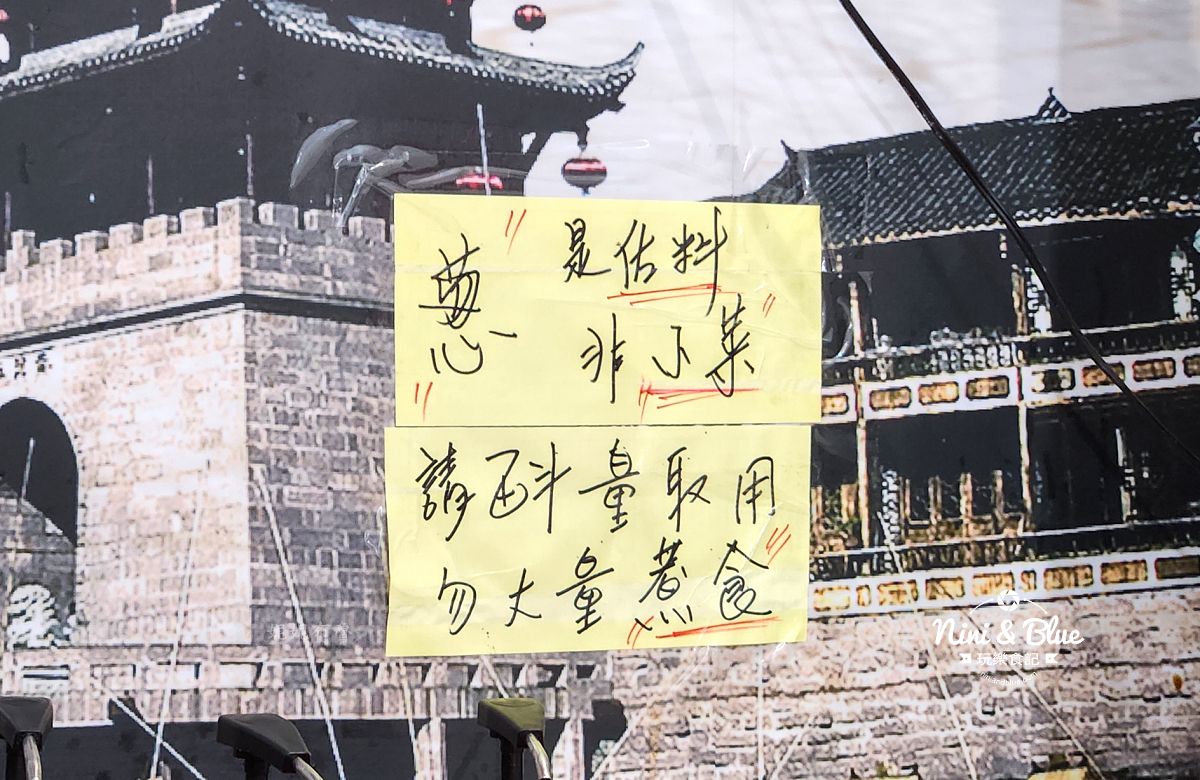 蔥
是佐料
非小菜
請斟量取用
勿大量煮食
Nini & Blue
玩樂食記